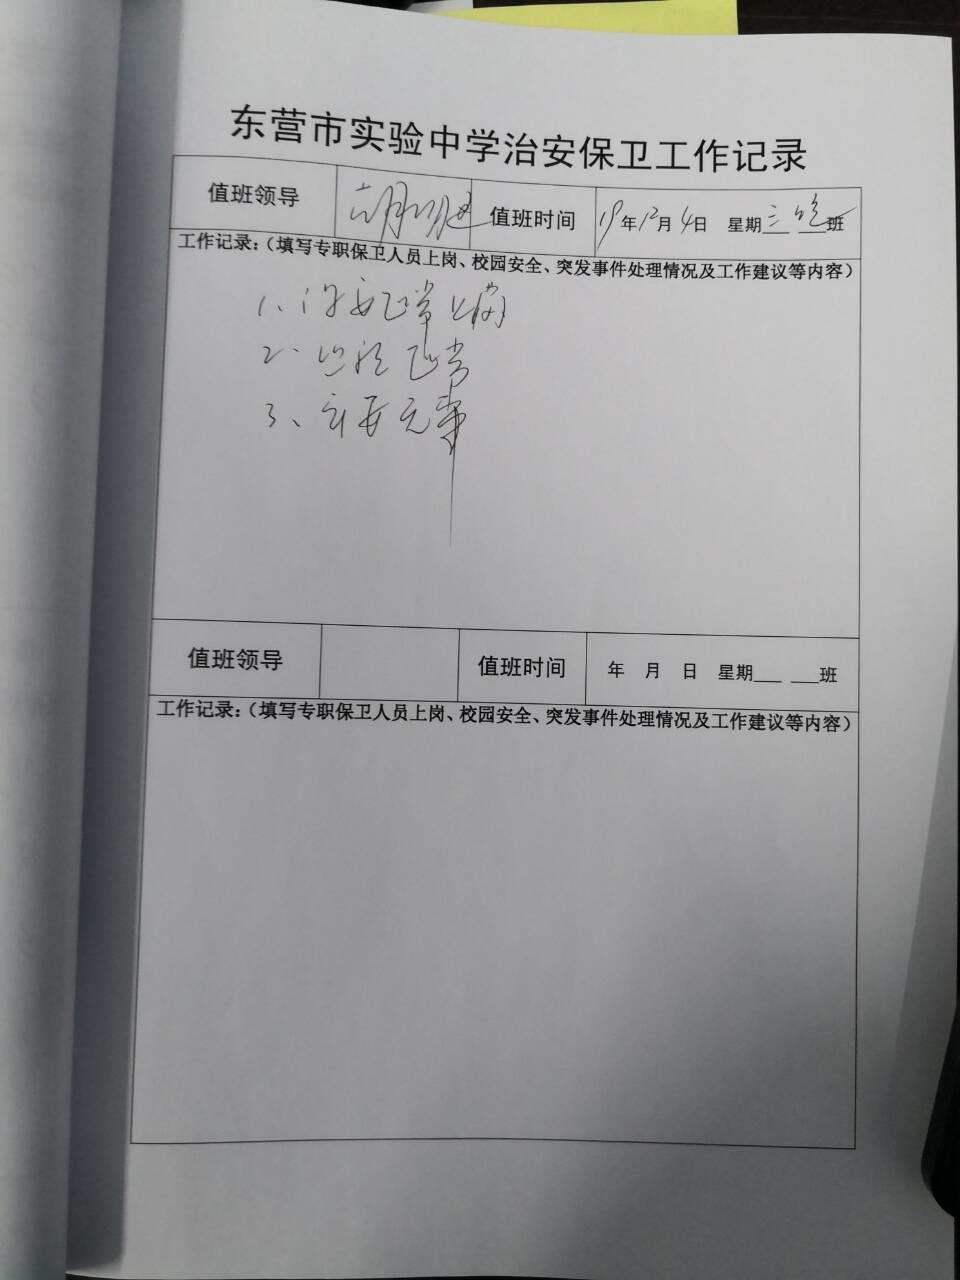 东营市实验中学治安保卫工作记录
值班领导 值班时间 19年12月4日 星期三 晚班
工作记录：（填写专职保卫人员上岗、校园安全、突发事件处理情况及工作建议等内容）
1、保安正常上岗
2、正常
3、平安无事
值班领导 值班时间 年 月 日 星期___ ___班
工作记录：（填写专职保卫人员上岗、校园安全、突发事件处理情况及工作建议等内容）